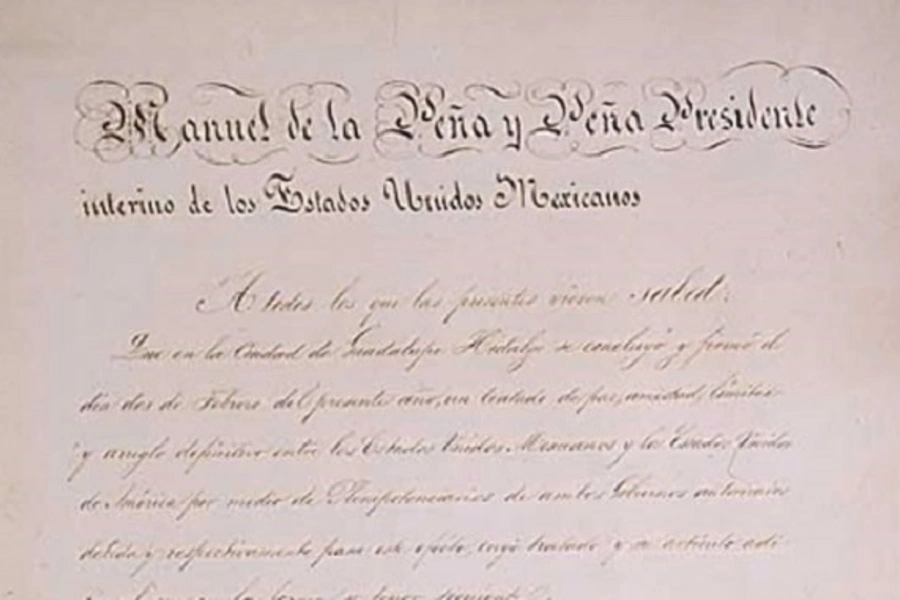 Manuel de la Peña y Peña Presidente
interino de los Estados Unidos Mexicanos
A todos los que las presentes vieren salud:
Que en la Ciudad de Guadalupe Hidalgo se concluyó y firmó el
dia dos de Febrero del presente año, un tratado de paz, amistad, límites
y arreglo definitivo entre los Estados Unidos Mexicanos y los Estados Unidos
de América por medio de Plenipotenciarios de ambos Gobiernos autorizados
debida y respectivamente para este efecto, cuyo tratado y su artículo adi-
en la forma y tenor siguiente